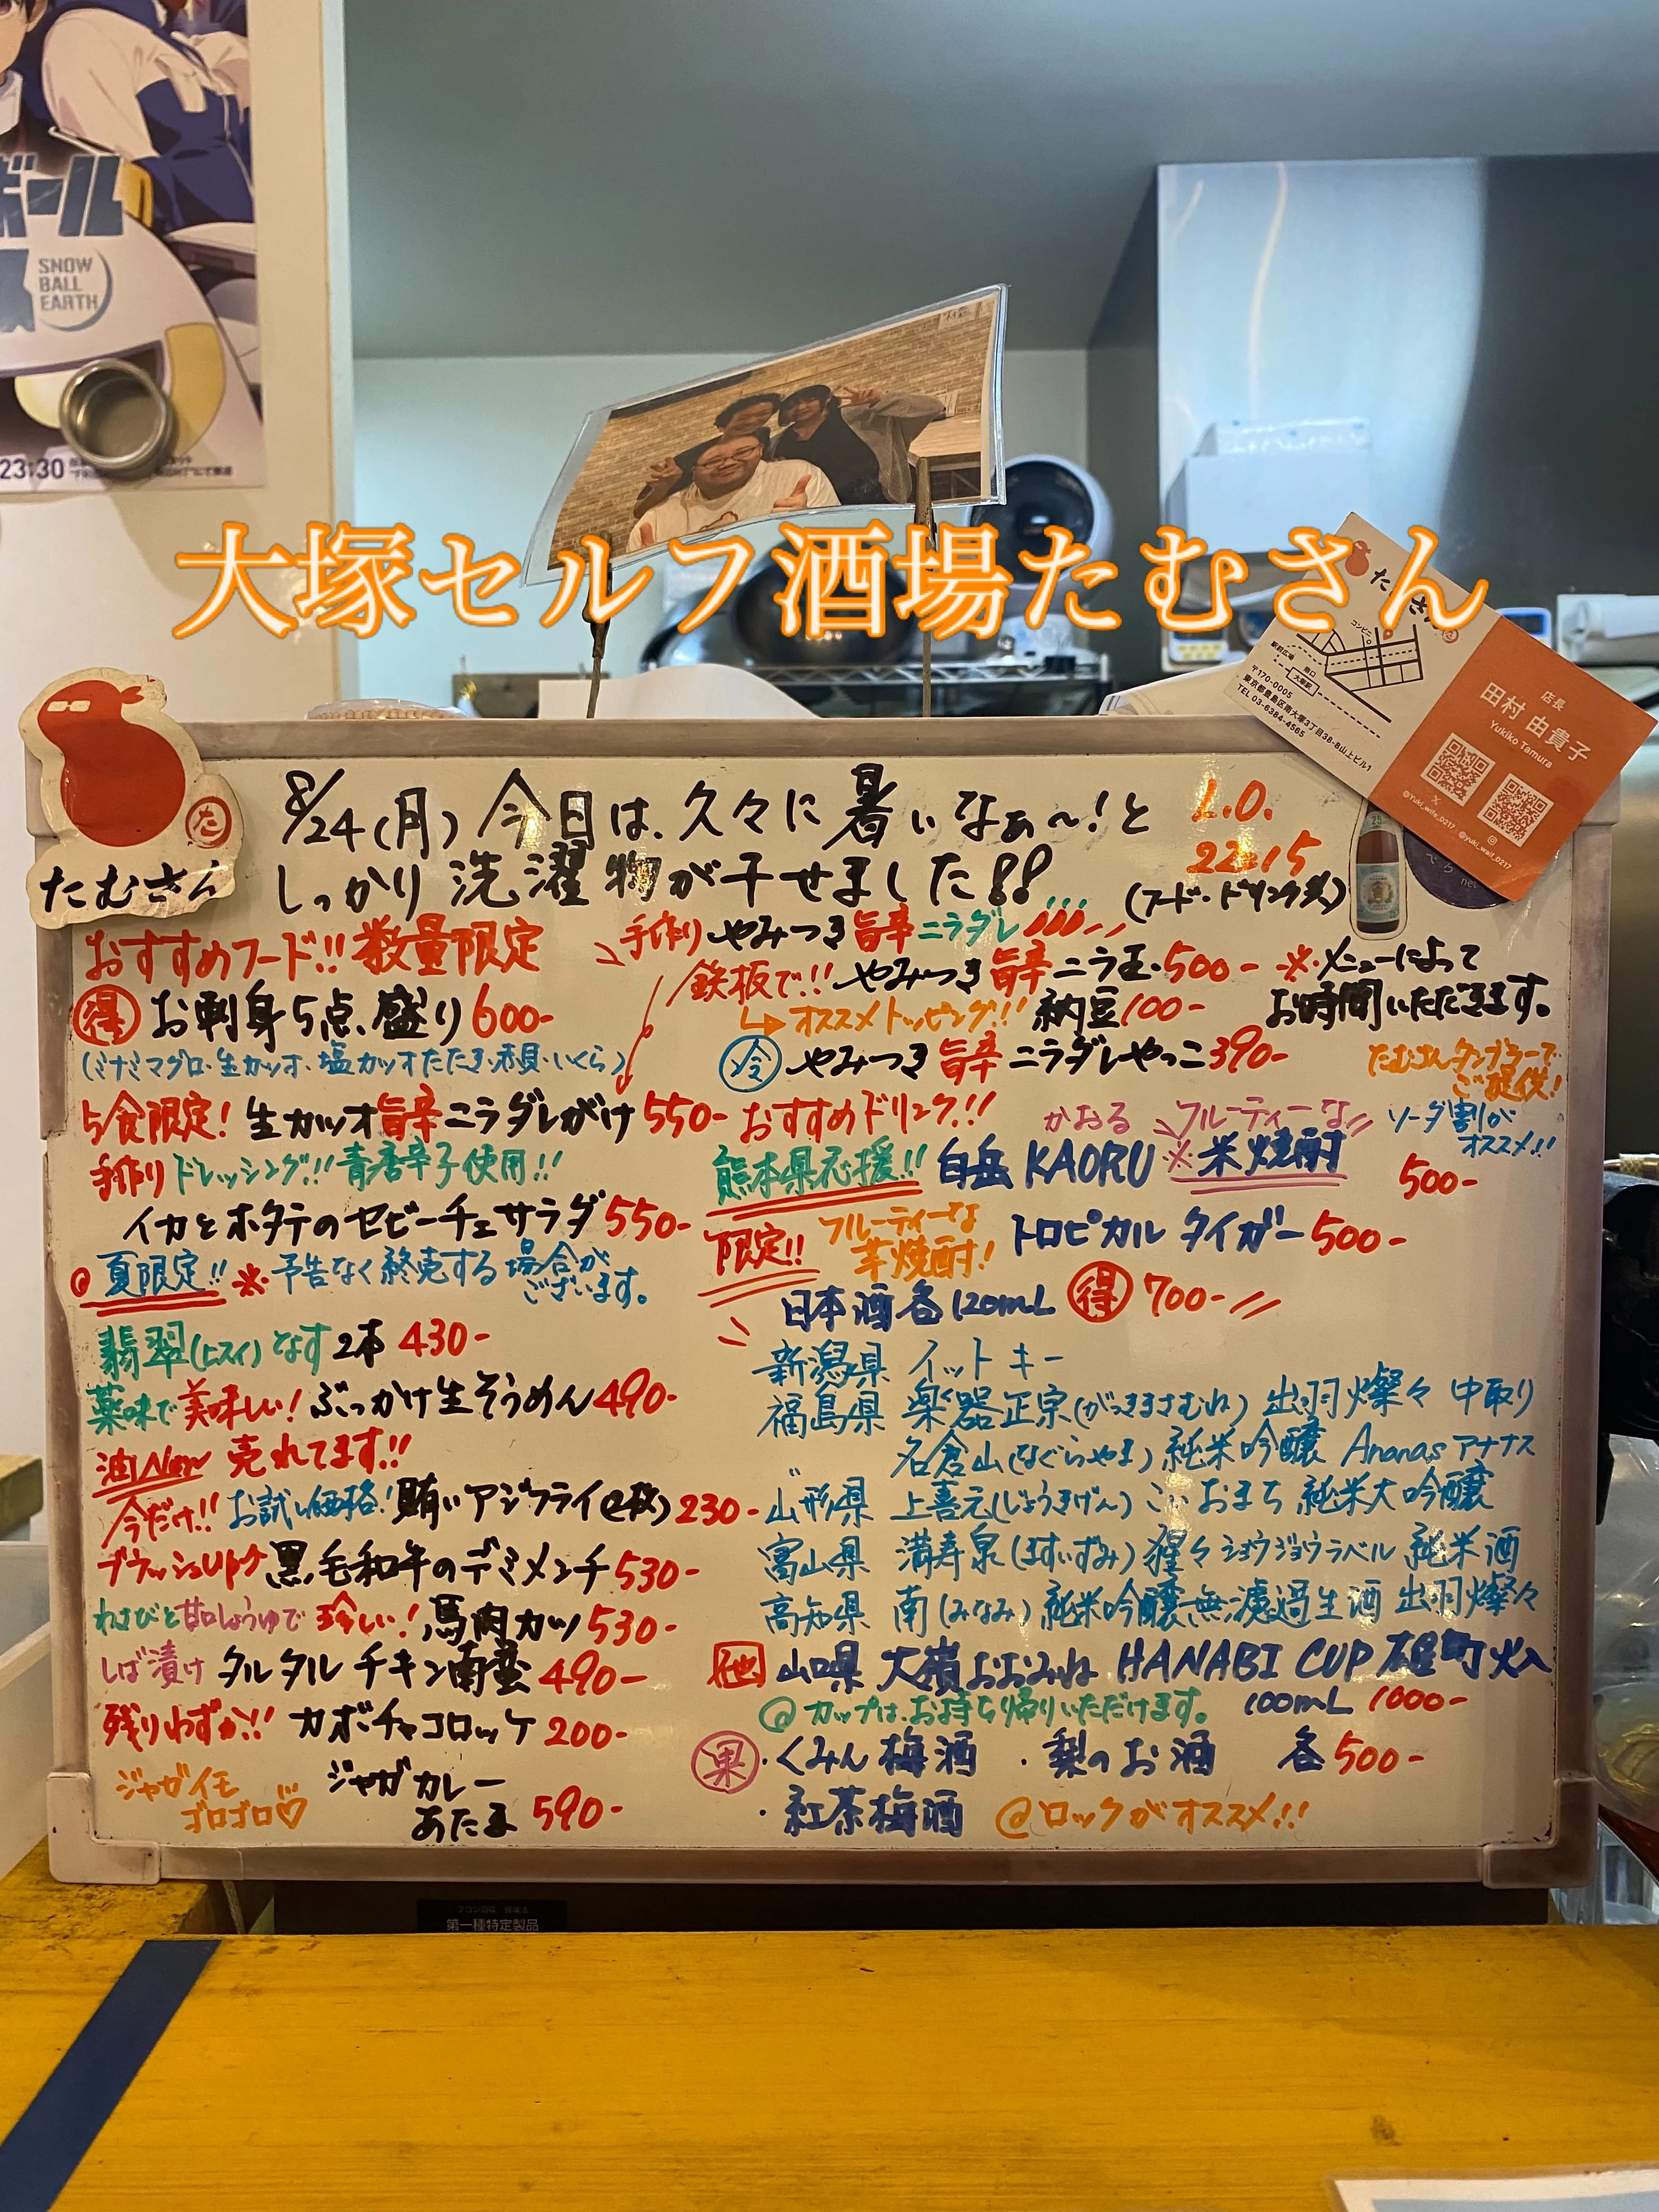 ボール
SNOW
BALL
EARTH
23:30
大塚セルフ酒場たむさん
たむさん
コンビニ
駅前広場
南口
大塚駅
〒170-0005
東京都豊島区南大塚3丁目38-8山上ビル1
TEL 03-6384-4565
店長
田村 由貴子
Yukiko Tamura
@Yuki_wife_0217
@yuki_waif_0217
た
たむさん
8/24(月) 今日は、久々に暑いなぁ〜!と
しっかり洗濯物が干せました!!
L.O.
22:15
(フード・ドリンク共)
おすすめフード!! 数量限定
得 お刺身5点盛り 600-
(ミナミマグロ・生カツオ・塩カツオたたき・赤貝・いくら)
5食限定! 生カツオ旨辛ニラダレがけ 550-
手作りドレッシング!! 青唐辛子使用!!
イカとホタテのセビーチェサラダ 550-
夏限定!! ※予告なく終売する場合が
ございます。
翡翠(ヒスイ)なす2本 430-
薬味で美味しい! ぶっかけ生そうめん 490-
油New 売れてます!!
今だけ!! お試し価格! 賄いアジフライ(2枚) 230-
ブラッシュUP 黒毛和牛のデミメンチ 530-
わさびと甘口しょうゆで 珍しい! 馬肉カツ 530-
しば漬け タルタルチキン南蛮 490-
残りわずか!! カボチャコロッケ 200-
ジャガイモ
ゴロゴロ♡
ジャガカレー
あたま 590-
手作り やみつき旨辛ニラダレ
鉄板で!! やみつき旨辛ニラ玉・500-
※メニューによって
お時間いただきます。
オススメトッピング!! 納豆100-
冷 やみつき旨辛ニラダレやっこ390-
たむさんタンブラーで
ご提供!
おすすめドリンク!!
かおる フルーティーな
ソーダ割が
オススメ!!
熊本県応援!! 白岳 KAORU ※米焼酎
500-
限定!! フルーティーな
芋焼酎! トロピカルタイガー 500-
日本酒各120mL 得 700-
新潟県 イットキー
福島県 楽器正宗(がっきまさむね) 出羽燦々 中取り
〃 名倉山(なぐらやま) 純米吟醸 Ananas アナナス
山形県 上喜元(じょうきげん) こいおまち 純米大吟醸
富山県 満寿泉(ますいずみ) 猩々ショウジョウラベル 純米酒
高知県 南(みなみ) 純米吟醸無濾過生酒 出羽燦々
他 山口県 大嶺おおみね HANABI CUP 雄町火入
@カップは、お持ち帰りいただけます。 100mL 1000-
果 ・くみん梅酒 ・梨のお酒 各500-
・紅茶梅酒 @ロックがオススメ!!
第一種特定製品